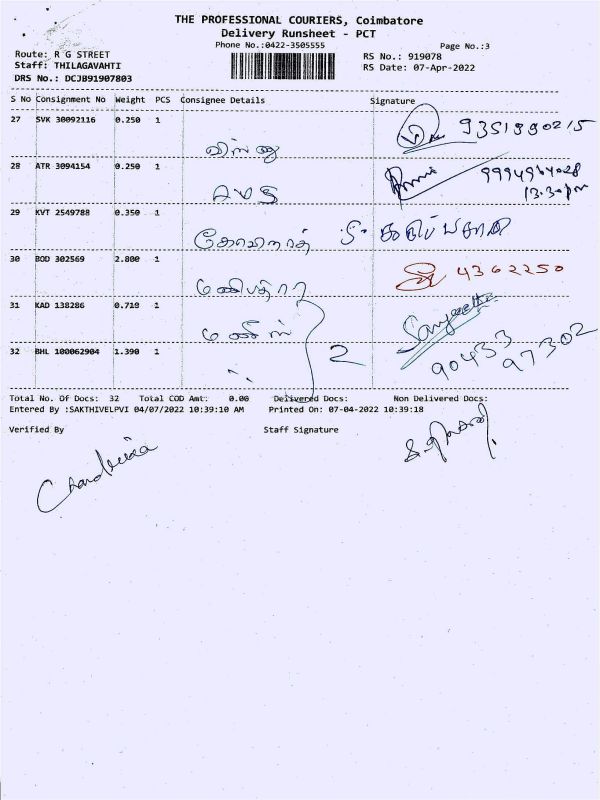 THE PROFESSIONAL COURIERS, Coimbatore
Delivery Runsheet - PCT
Phone No.:0422-3505555
Page No.:3
Route: R G STREET
RS No.: 919078
Staff: THILAGAVAHTI
RS Date: 07-Apr-2022
DRS No.: DCJB91907803
S No Consignment No Weight PCS Consignee Details Signature
27 SVK 30092116 0.250 1
28 ATR 3094154 0.250 1
13.30pm
29 KVT 2549788 0.350 1
30 BOD 302569 2.800 1 4362250
31 KAD 138286 0.710 1 Sangeetha
2
90453
97302
32 BHL 100062904 1.390 1
Total No. Of Docs: 32 Total COD Amt: 0.00 Delivered Docs: Non Delivered Docs:
Entered By :SAKTHIVELPVI 04/07/2022 10:39:10 AM Printed On: 07-04-2022 10:39:18
Verified By Staff Signature